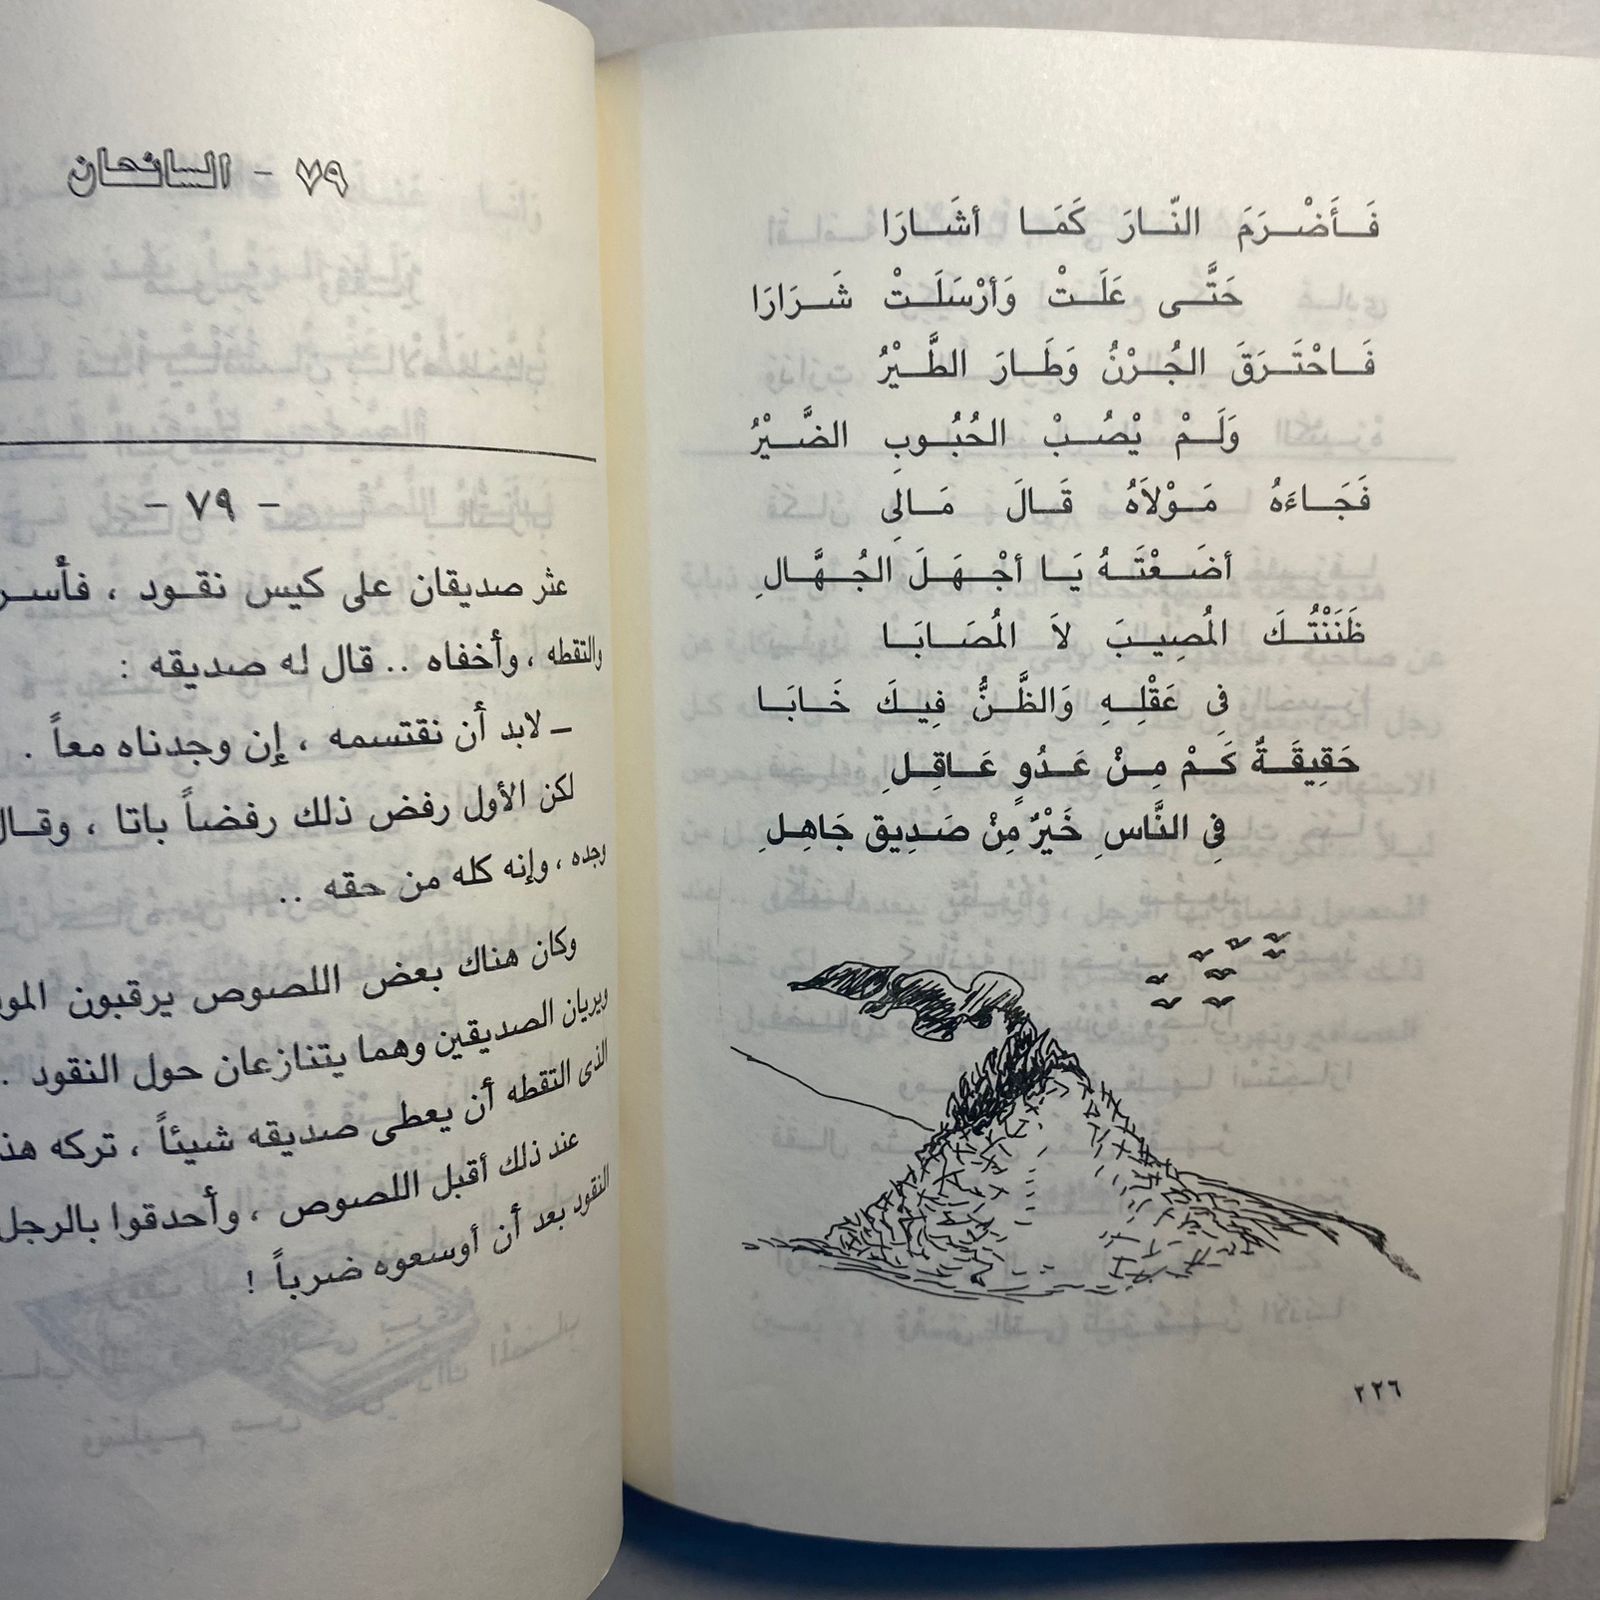 فَأَضْرَمَ النّارَ كَمَا أشَارَا
حَتَّى عَلَتْ وَأرْسَلَتْ شَرَارَا
فَاحْتَرَقَ الجُرْنُ وَطَارَ الطَّيْرُ
وَلَمْ يْصُبْ الحُبُوبِ الضَّيْرُ
فَجَاءَهُ مَوْلاَهُ قَالَ مَالِى
أضَعْتَهُ يَا أجْهَلَ الجُهَّالِ
ظَنَنْتُكَ المُصِيبَ لاَ المُصَابَا
فِى عَقْلِهِ وَالظَّنُّ فِيكَ خَابَا
حَقِيقَةٌ كَمْ مِنْ عَدُوٍ عَاقِلِ
فِى النَّاسِ خَيْرٌ مِنْ صَدِيق جَاهِلِ
٢٢٦
٧٩ - السائحان
- ٧٩ -
عثر صديقان على كيس نقود ، فأسر
والتقطه ، وأخفاه .. قال له صديقه :
ـ لابد أن نقتسمه ، إن وجدناه معاً .
لكن الأول رفض ذلك رفضاً باتا ، وقال
وجده ، وإنه كله من حقه ..
وكان هناك بعض اللصوص يرقبون المو
ويريان الصديقين وهما يتنازعان حول النقود .
الذى التقطه أن يعطى صديقه شيئاً ، تركه هذ
عند ذلك أقبل اللصوص ، وأحدقوا بالرجل
النقود بعد أن أوسعوه ضرباً !